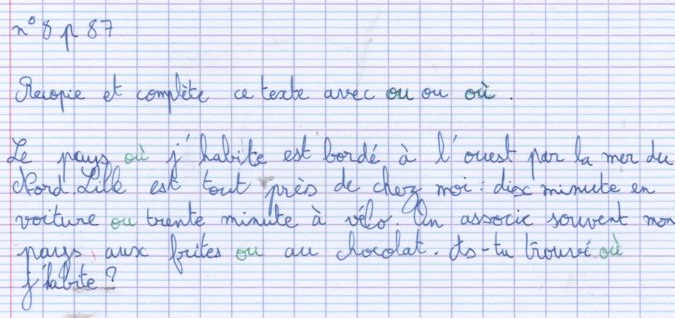 n° 8 p 87
Recopie et complète ce texte avec ou ou où.
Le pays où j'habite est bordé à l'ouest par la mer du
Nord. Lille est tout près de chez moi : dix minute en
voiture ou trente minute à vélo. On associe souvent mon
pays aux frites ou au chocolat. As-tu trouvé où
j'habite ?